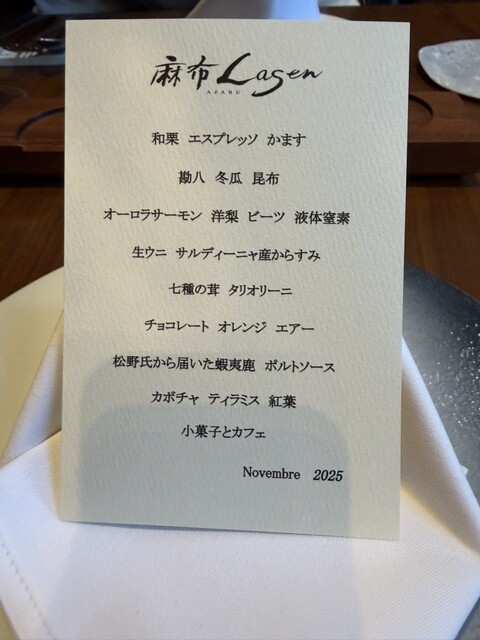 麻布 Lagen
AZABU
和栗 エスプレッソ かます
勘八 冬瓜 昆布
オーロラサーモン 洋梨 ビーツ 液体窒素
生ウニ サルディーニャ産からすみ
七種の茸 タリオリーニ
チョコレート オレンジ エアー
松野氏から届いた蝦夷鹿 ポルトソース
カボチャ ティラミス 紅葉
小菓子とカフェ
Novembre 2025